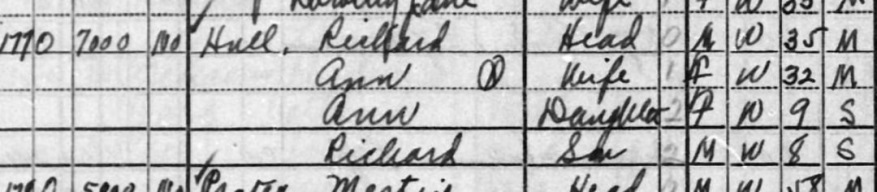 Wife W 35 M
1770 7000 No Hull, Richard Head 0 M W 35 M
Ann Ⓧ Wife 1 F W 32 M
Ann Daughter 2 F W 9 S
Richard Son 2 M W 8 S
Martin Head M W